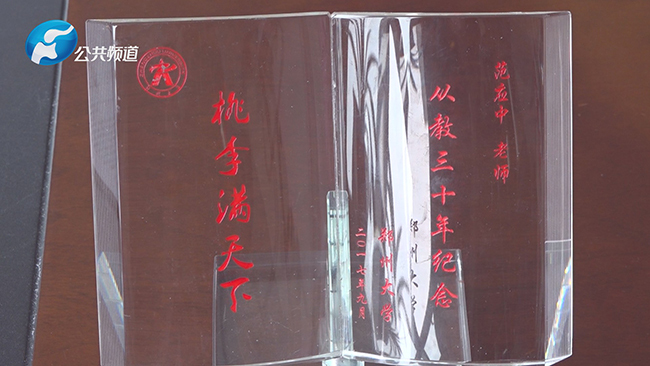 公共频道
桃李满天下
范 中 老师
从教三十年纪念
郑州大学
二〇一七年九月